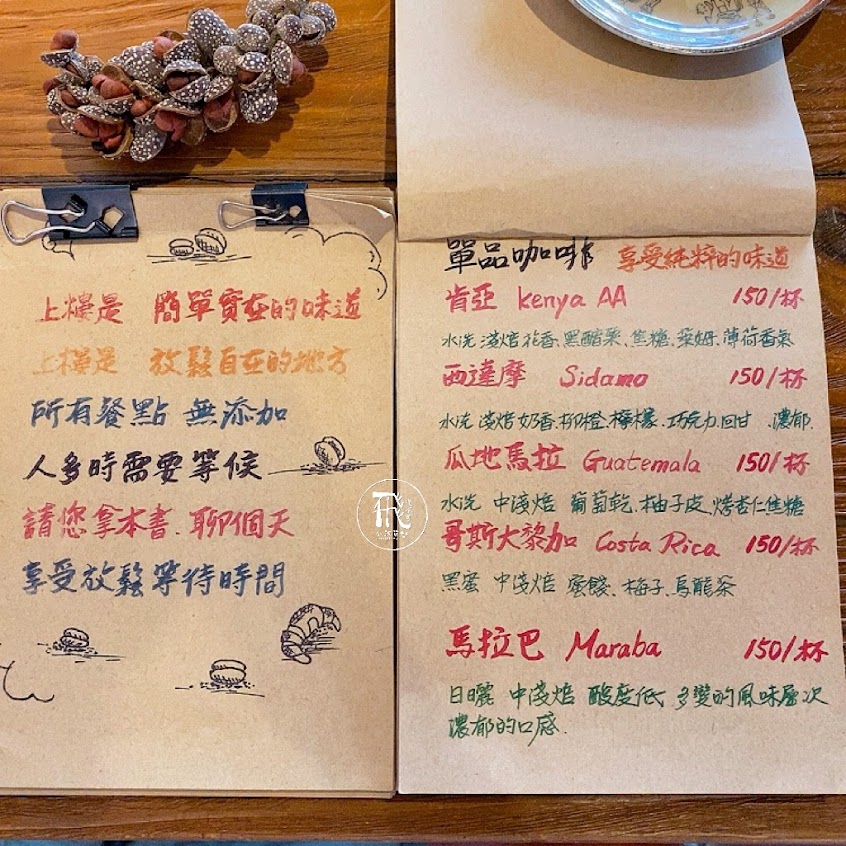 上樓是 簡單實在的味道
上樓是 放鬆自在的地方
所有餐點 無添加
人多時需要等候
請您拿本書、聊個天
享受放鬆等待時間
飛
單品咖啡 享受純粹的味道
肯亞 kenya AA 150/杯
水洗 淺焙 花香、黑醋栗、焦糖、烏梅、薄荷香氣
西達摩 Sidamo 150/杯
水洗 淺焙 奶香、柳橙、檸檬、巧克力、回甘、濃郁.
瓜地馬拉 Guatemala 150/杯
水洗 中淺焙 葡萄乾、柚子皮、烤杏仁焦糖
哥斯大黎加 Costa Rica 150/杯
黑蜜 中淺焙 蜜餞、梅子、烏龍茶
馬拉巴 Maraba 150/杯
日曬 中淺焙 酸度低 多變的風味層次
濃郁的口感.